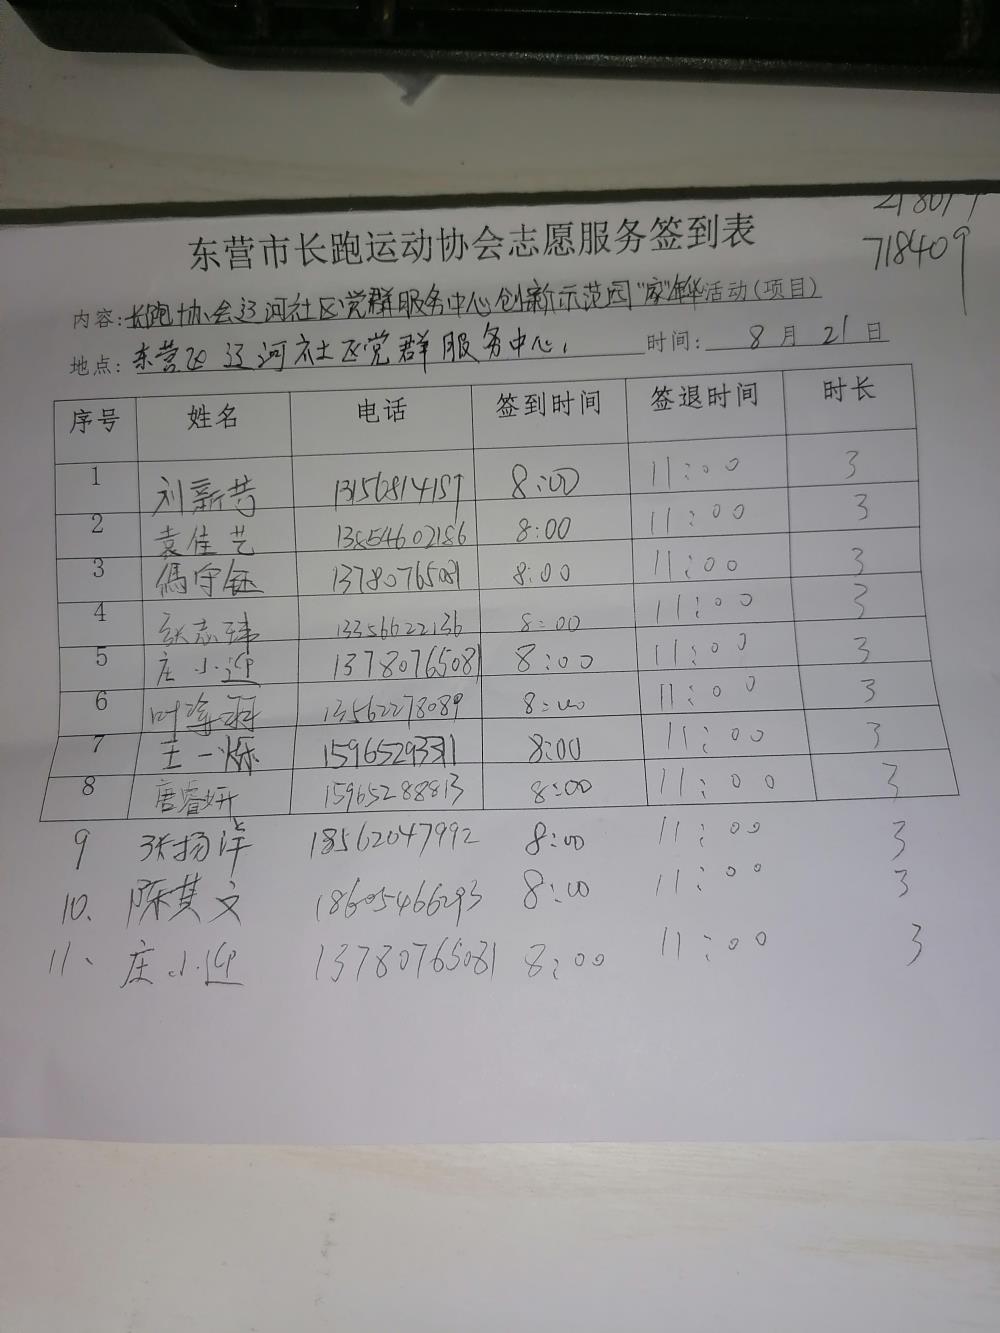 718409
东营市长跑运动协会志愿服务签到表
内容:长跑协会辽河社区党群服务中心创新示范园"家"活动(项目)
地点:东营区辽河社区党群服务中心. 时间: 8月21日
序号 姓名 电话 签到时间 签退时间 时长
1 刘新 13156814157 8:00 11:00 3
2 袁佳艺 13854602186 8:00 11:00 3
3 守钰 13780765081 8:00 11:00 3
4 张志玮 13356622136 8:00 11:00 3
5 庄小迎 13780765081 8:00 11:00 3
6 叶 13562278089 8:00 11:00 3
7 王一烁 15965293311 8:00 11:00 3
8 唐睿妍 15965288813 8:00 11:00 3
9 张扬洋 18562047992 8:00 11:00 3
10、 陈其文 18605466293 8:00 11:00 3
11、 庄小迎 13780765081 8:00 11:00 3